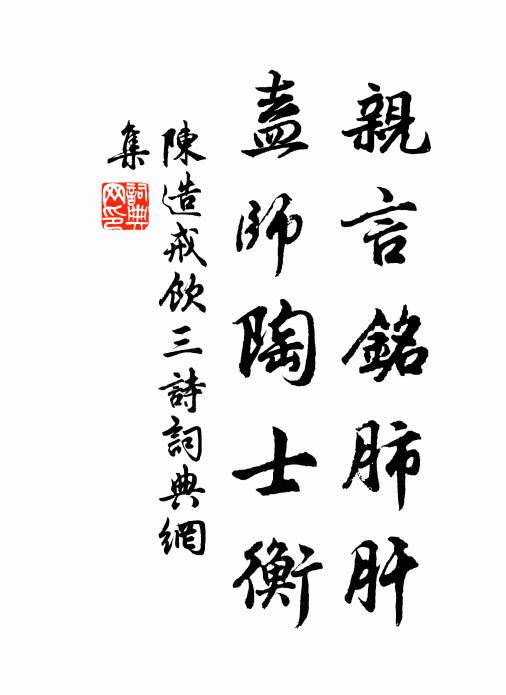 親言銘肺肝
盍師陶士衡
陳造戒飲三詩詞典網
集
詞典网印